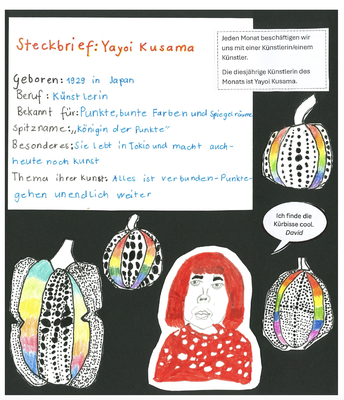 Steckbrief: Yayoi Kusama
Geboren: 1929 in Japan
Beruf: Künstlerin
Bekannt für: Punkte, bunte Farben und Spiegelräume
Spitzname: „Königin der Punkte"
Besonderes: Sie lebt in Tokio und macht auch-
heute noch Kunst
Thema ihrer Kunst: Alles ist verbunden-Punkte-
gehen unendlich weiter
Jeden Monat beschäftigen wir
uns mit einer Künstlerin/einem
Künstler.
Die diesjährige Künstlerin des
Monats ist Yayoi Kusama.
Ich finde die
Kürbisse cool.
David